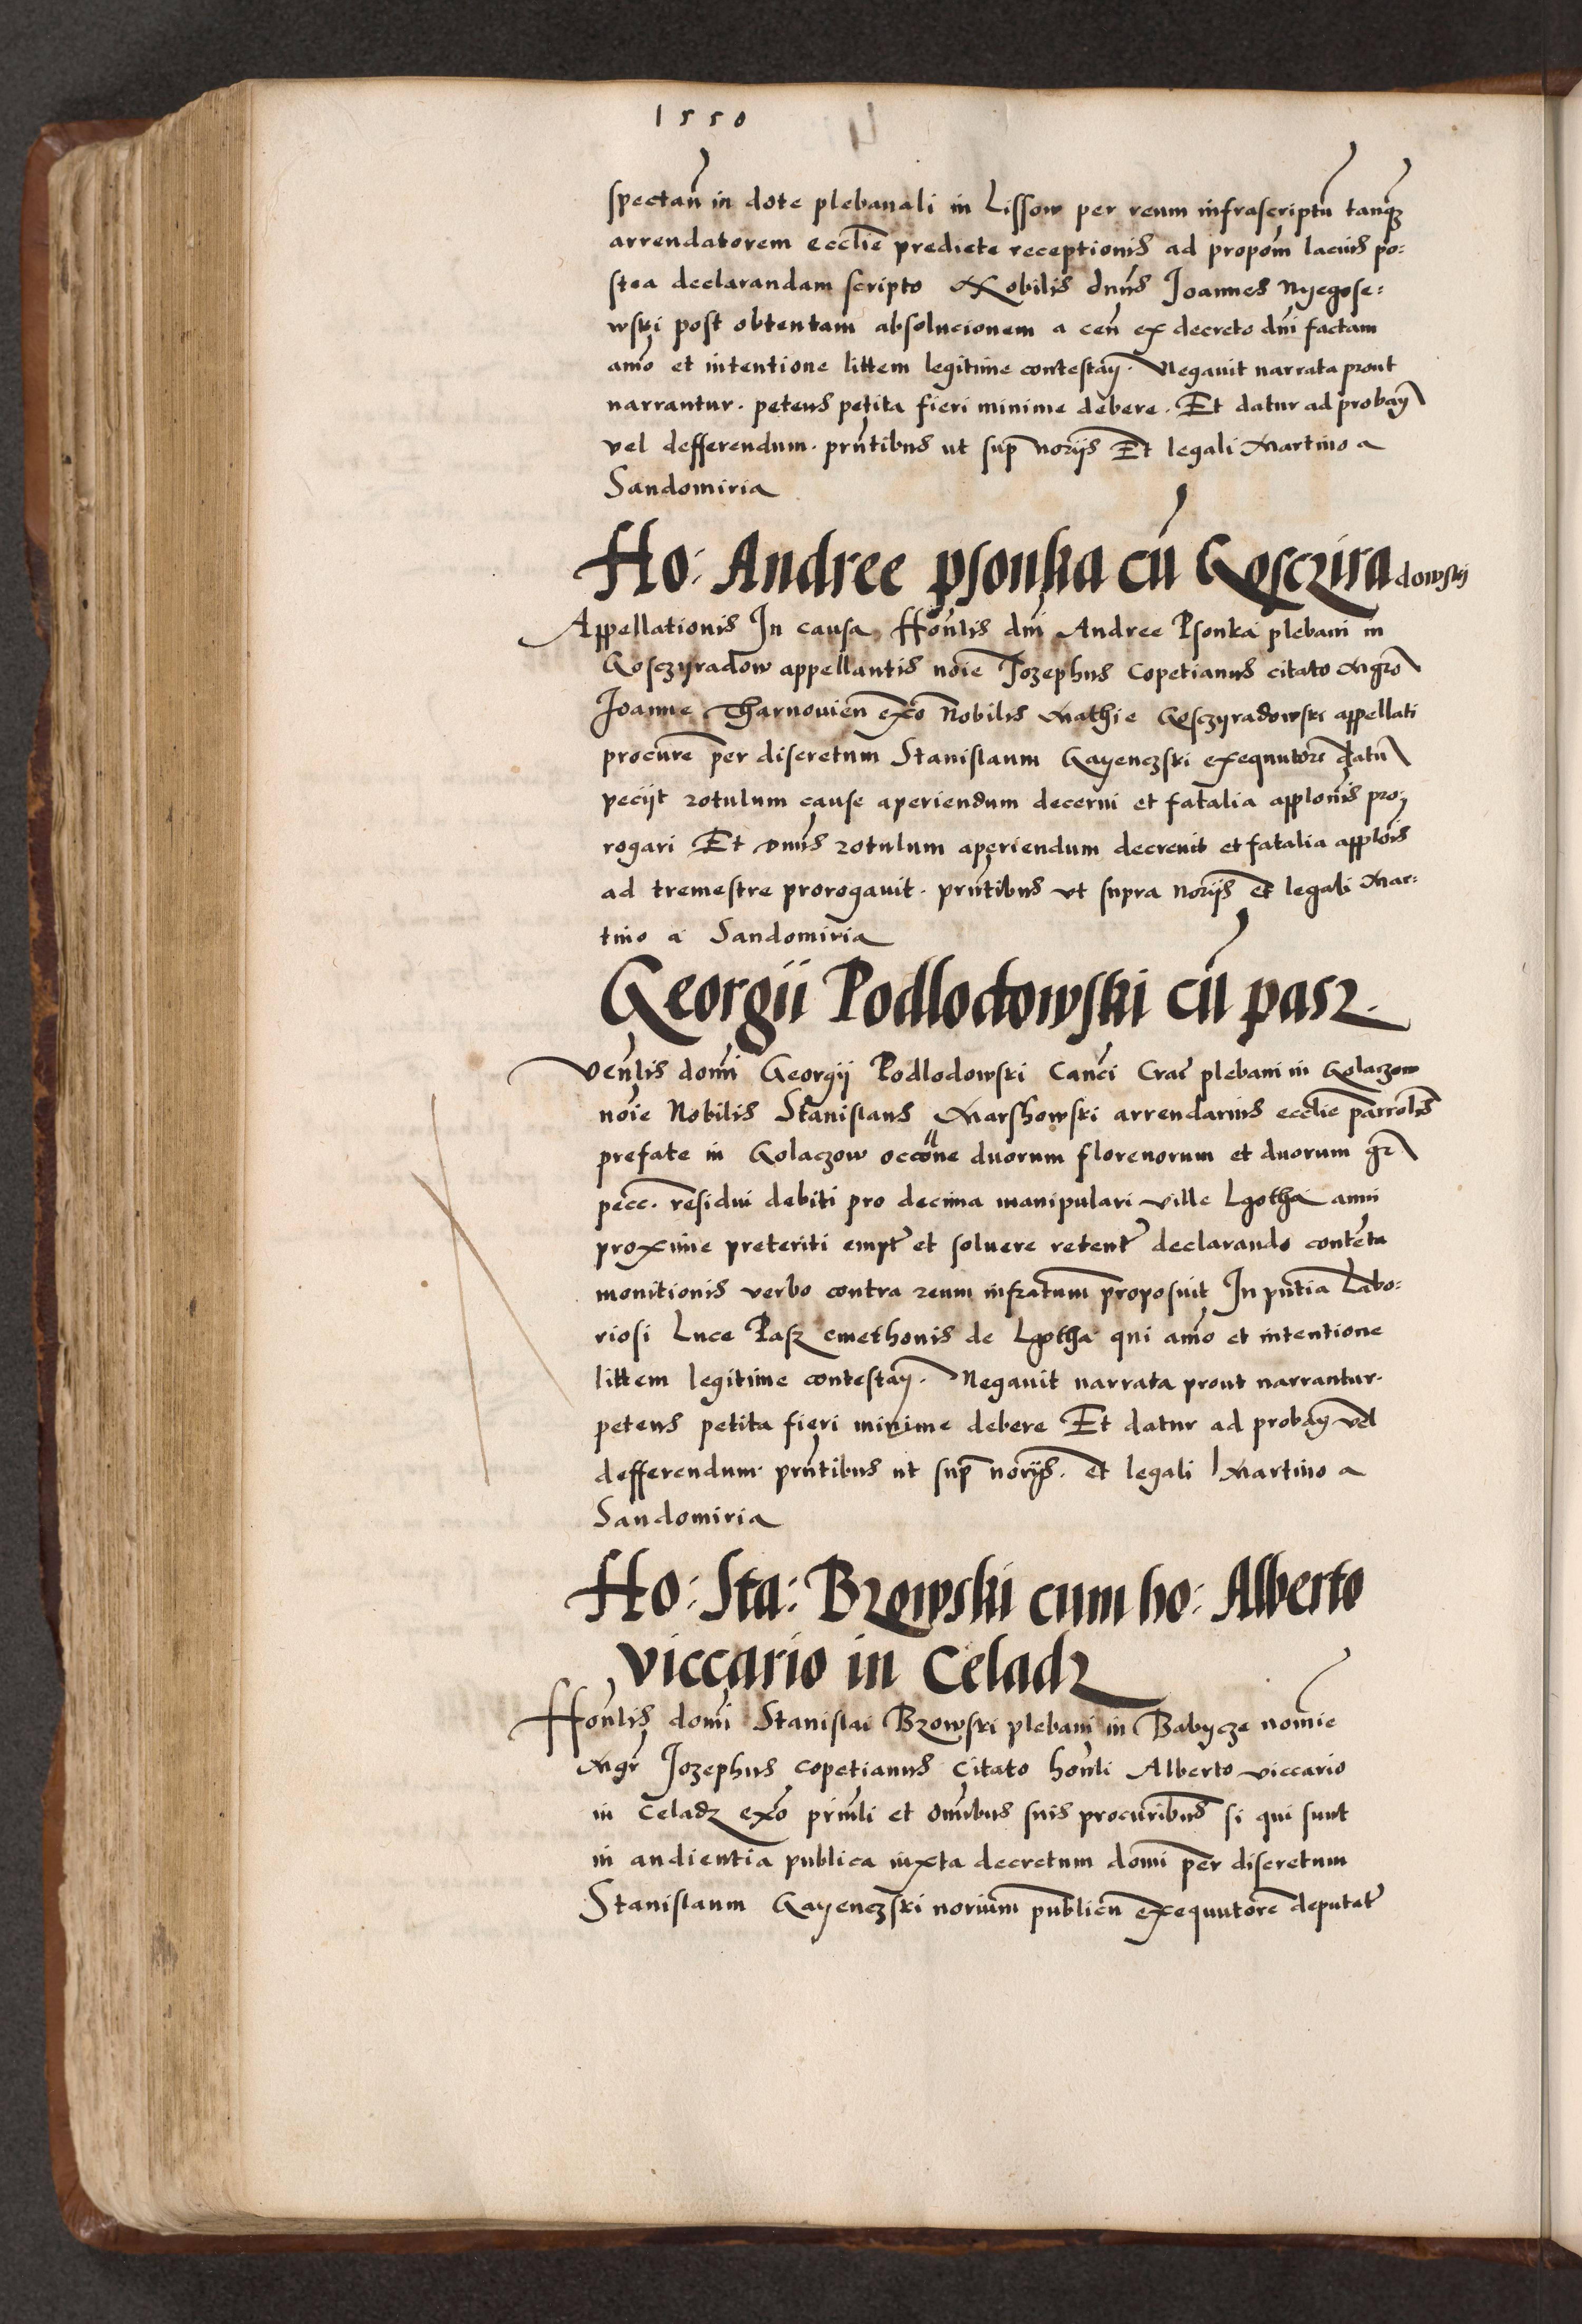 1550
spectan in dote plebanali in Lissow per reum infrascriptu tanq3
arrendatorem ecclie predicte receptionis ad propom lacius po:
stea declarandam scripto Nobilis dnus Joannes Nyegose:
wski post obtentam absolucionem a cen ex decreto dni factam
amo et intentione littem legitime contestan. Negavit narrata prout
narrantur. petens petita fieri minime debere. Et datur ad proban
vel defferendum. pntibus ut sup norijs Et legali Martino a
Sandomiria
Ho: Andree psonka cu Gosczira dowski
Appellationis In causa Honlis dni Andree Psonka plebani in
Gosczyradow appellantis noie Jozephus Copetianus citato Mgro
Joanne Tharnovien exo Nobilis Mathie Gosczyradowski appellati
procure per discretum Stanislaum Gayenczski exequutore datu
peciit rotulum cause aperiendum decerni et fatalia applonis pro:
rogari Et dnus rotulum aperiendum decrevit et fatalia applois
ad tremestre prorogavit. pntibus ut supra norijs et legali Mar:
tino a Sandomiria
Georgii Podlodowski cu pasz.
Venlis domi Georgij Podlodowski Canci Crac plebani in Golaczow
noie Nobilis Stanislaus Marshowski arrendarius ecclie parrolis
prefate in Golaczow occone duorum florenorum et duorum gr
pecc. residui debiti pro decima manipulari ville Lgotha anni
proxime preteriti empt et solvere retent declarando contenta
monitionis verbo contra reum infratum proposuit In pntia Labo:
riosi Luce Pasz cmethonis de Lgotha qui amo et intentione
littem legitime contestan. Negavit narrata prout narrantur.
petens petita fieri minime debere Et datur ad proban vel
defferendum. pntibus ut sup norijs. et legali Martino a
Sandomiria
Ho: Sta: Brzowski cum ho: Alberto
viccario in Celadz
Honlis domi Stanislai Brzowski plebani in Babycze nomie
Mgr Jozephus Copetianus Citato honli Alberto viccario
in Celadz exo prinli et omibus suis procuribus si qui sunt
in audientia publica iuxta decretum domi per discretum
Stanislaum Gayenczski norium publicu exequutore deputat